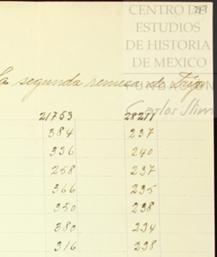 CENTRO DE
ESTUDIOS
DE HISTORIA
DE MEXICO
la segunda remesa de Trigo
Carlos Slim
21753 28211
384 237
336 240
258 237
366 235
350 238
380 234
316 238